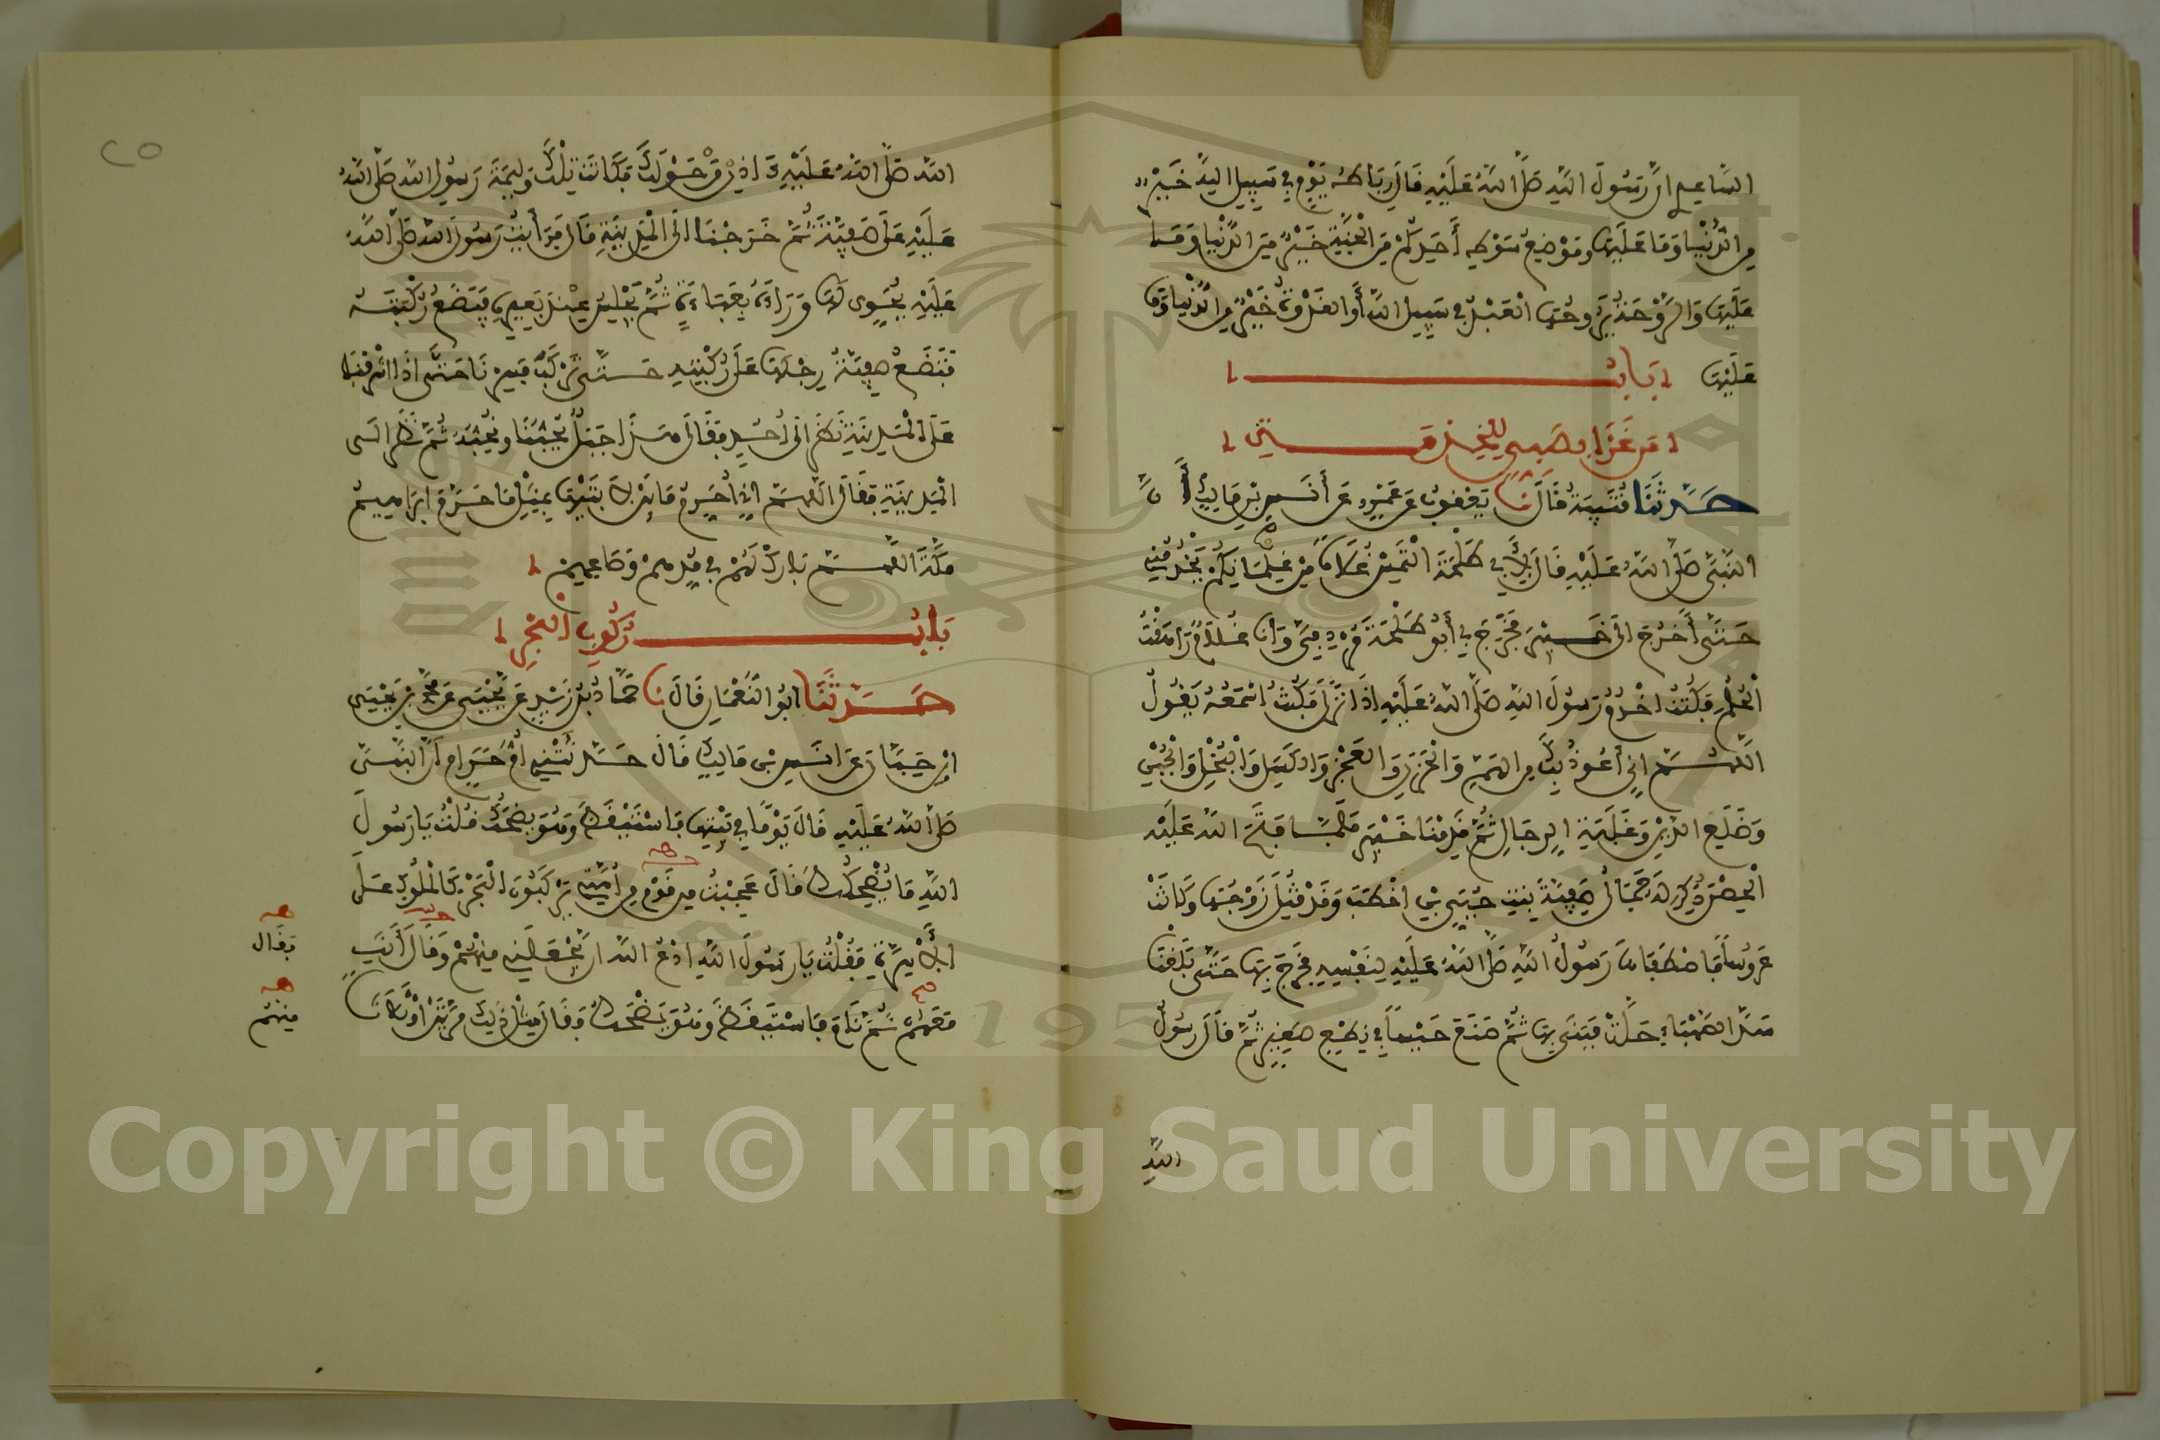 الساعدي ان رسول الله صلى الله عليه قال رباط يوم في سبيل الله خير
من الدنيا وما عليها وموضع سوط أحدكم من الجنة خير من الدنيا وما
عليها والروحة يروحها العبد في سبيل الله أو الغدوة خير من الدنيا وما
عليها باب
من غزا بصبي للخدمة
حدثنا قتيبة قال نا يعقوب عن عمرو عن أنس بن مالك أن
النبي صلى الله عليه قال لأبي طلحة التمس غلاما من غلمانكم يخدمني
حتى أخرج الى خيبر فخرج بي أبو طلحة مردفي وانا غلام راهقت
الحلم فكنت اخدم رسول الله صلى الله عليه اذا نزل فكنت اسمعه يقول
اللهم اني أعوذ بك من الهم والحزن والعجز والكسل والبخل والجبن
وضلع الدين وغلبة الرجال ثم قدمنا خيبر فلما فتح الله عليه
الحصن ذكر له جمال صفية بنت حيي بن اخطب وقد قتل زوجها وكانت
عروسا فاصطفاها رسول الله صلى الله عليه لنفسه فخرج بها حتى بلغنا
سد الصهباء حلت فبنى بها ثم صنع حيسا في نطع صغير ثم قال رسول
الله
٢٥
الله صلى الله عليه اذن من حولك فكانت تلك وليمة رسول الله صلى الله
عليه على صفية ثم خرجنا الى المدينة قال فرأيت رسول الله صلى الله
عليه يحوى لها وراءه بعباءة ثم يجلس عند بعيره فيضع ركبته
فتضع صفية رجلها على ركبته حتى تركب فسرنا حتى اذا اشرفنا
على المدينة نظر الى أحد فقال هذا جبل يحبنا ونحبه ثم نظر الى
المدينة فقال اللهم اني أحرم ما بين لابتيها بمثل ما حرم ابراهيم
مكة اللهم بارك لهم في مدهم وصاعهم
باب ركوب البحر
حدثنا ابو النعمان قال نا حماد بن زيد عن يحيى عن محمد بن يحيى
ابن حبان عن انس بن مالك قال حدثتني أم حرام أن النبي
صلى الله عليه قال يوما في بيتها فاستيقظ وهو يضحك قلت يا رسول
الله ما يضحكك قال عجبت من قوم من أمتي يركبون البحر كالملوك على
الأسرة فقلت يا رسول الله ادع الله ان يجعلني منهم وقال أنت
معهم ثم نام فاستيقظ وهو يضحك وقال مثل ذلك مرتين او ثلاثا
فقال
منهم
Copyright © King Saud University
1957